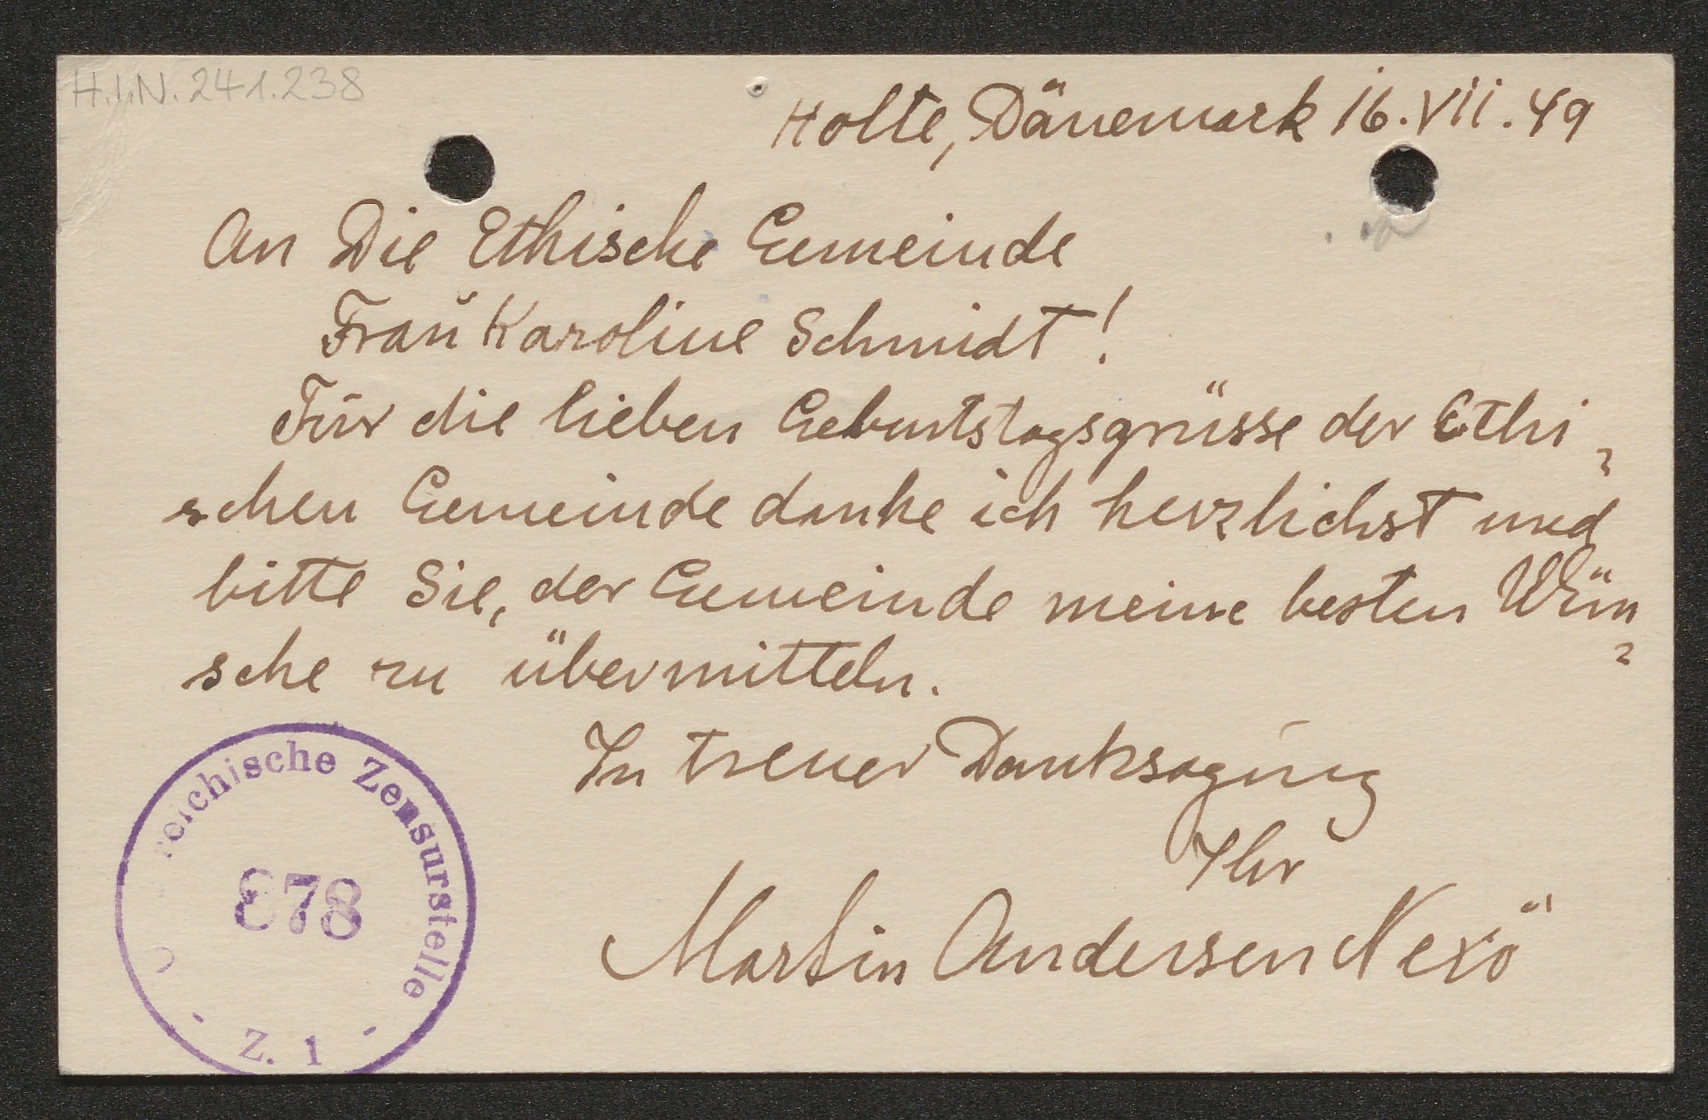 H.I.N. 241.238
Holte, Dänemark 16.VII.49
An Die Ethische Gemeinde
Frau Karoline Schmidt!
Für die lieben Geburtstagsgrüsse der Ethi-
schen Gemeinde danke ich herzlichst und
bitte Sie, der Gemeinde meine besten Wün-
sche zu übermitteln.
In treuer Danksagung
Ihr
Martin Andersen Nexö
reichische Zensurstelle
878
- Z. 1 -